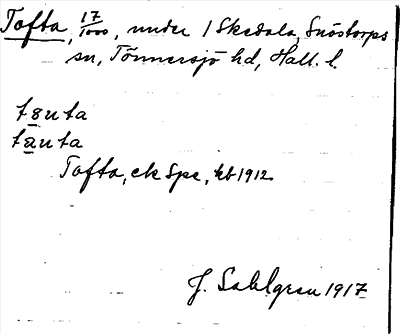 Tofta, 17/1000, under 1 Skedala, Snöstorps
sn, Tönnersjö hd, Hall. l.
tɜuta
tauta
Tofta, ek Spe, kb 1912
J. Sahlgren 1917